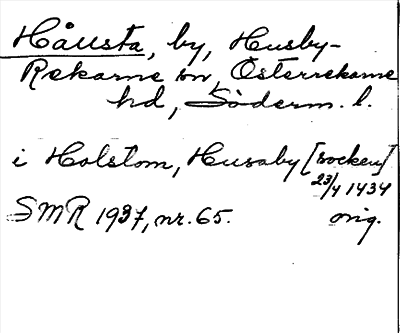 Hållsta, by, Husby-
Rekarne sn, Österrekarne
hd, Söderm. l.
i Holstom, Husaby [socken]
23/4 1434
SMR 1937, nr. 65. orig.